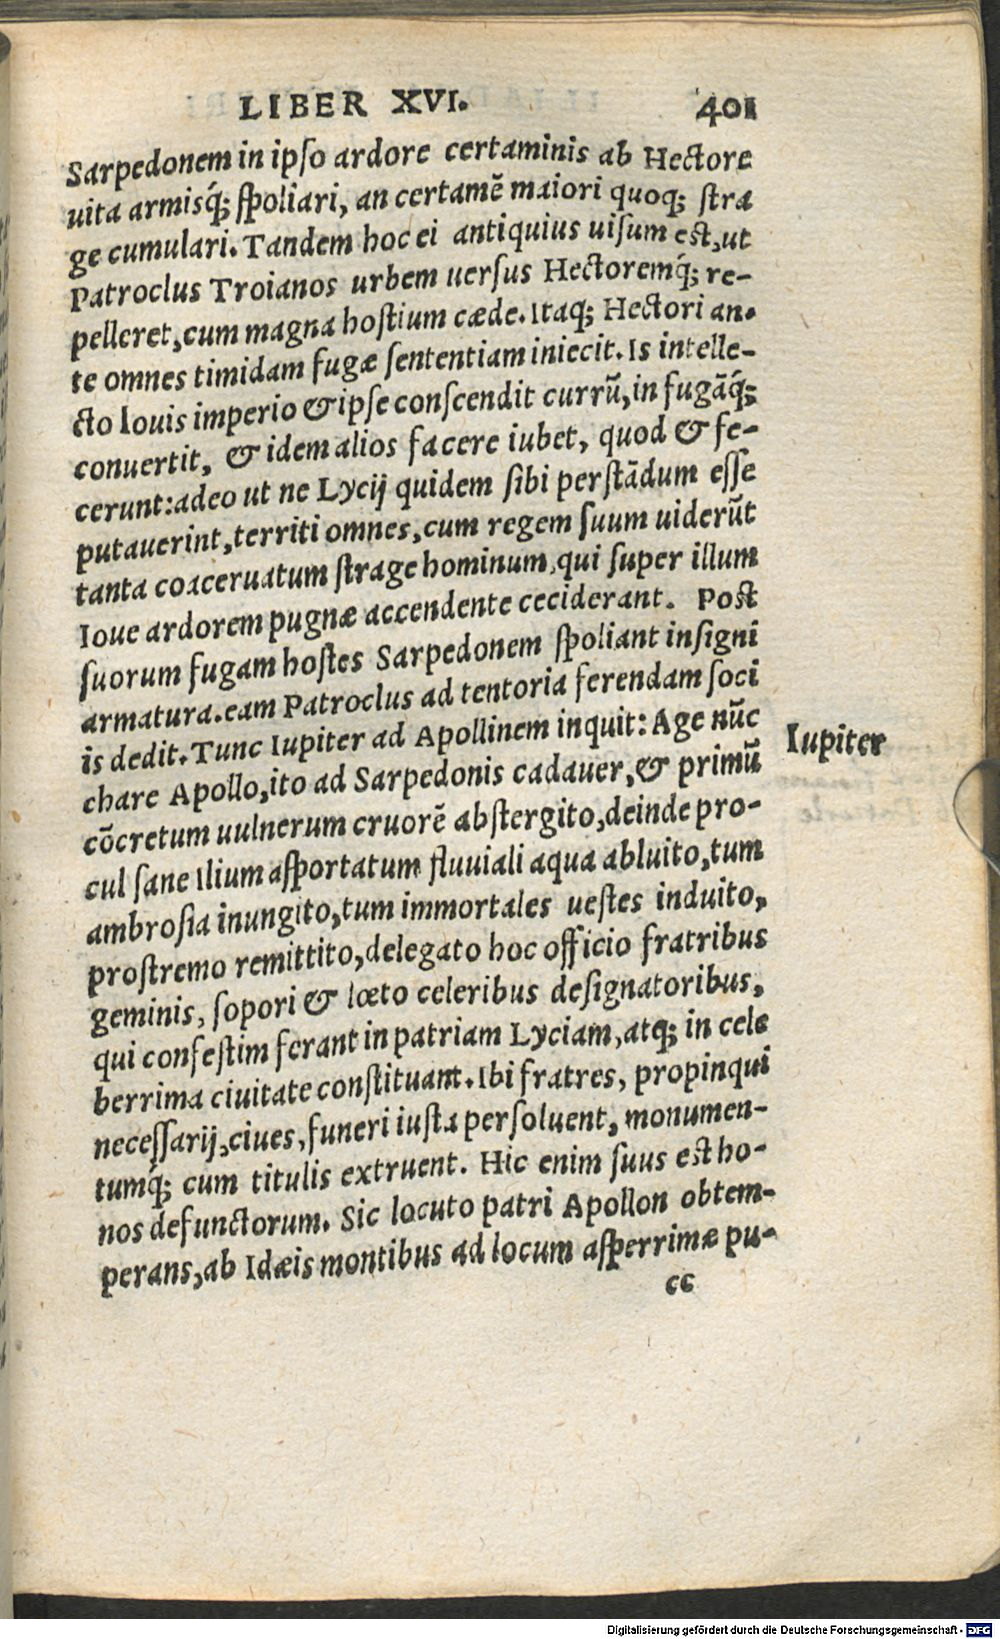 LIBER XVI. 401
Sarpedonem in ipſo ardore certaminis ab Hectore
uita armisq́; ſpoliari, an certamē maiori quoq; ſtra
ge cumulari. Tandem hoc ei antiquius uiſum est, ut
Patroclus Troianos urbem uerſus Hectoremq́; re-
pelleret, cum magna hoſtium cæde. Itaq; Hectori an-
te omnes timidam fugæ ſententiam iniecit. Is intelle-
cto Iouis imperio & ipſe conſcendit currū, in fugāq́;
conuertit, & idem alios facere iubet, quod & fe-
cerunt: adeo ut ne Lycij quidem ſibi perſtādum eſſe
putauerint, territi omnes, cum regem ſuum uiderūt
tanta coaceruatum ſtrage hominum, qui ſuper illum
Ioue ardorem pugnæ accendente ceciderant. Post
ſuorum fugam hoſtes Sarpedonem ſpoliant inſigni
armatura. eam Patroclus ad tentoria ferendam ſoci
is dedit. Tunc Iupiter ad Apollinem inquit: Age nūc
Iupiter
chare Apollo, ito ad Sarpedonis cadauer, & primū
cōcretum uulnerum cruorē abſtergito, deinde pro-
cul ſane Ilium aſportatum fluuiali aqua abluito, tum
ambroſia inungito, tum immortales ueſtes induito,
proſtremo remittito, delegato hoc officio fratribus
geminis, ſopori & lœto celeribus deſignatoribus,
qui confeſtim ferant in patriam Lyciam, atq; in cele
berrima ciuitate conſtituant. Ibi fratres, propinqui
neceſſarij, ciues, funeri iuſta perſoluent, monumen-
tumq́; cum titulis extruent. Hic enim ſuus est ho-
nos defunctorum. Sic locuto patri Apollon obtem-
perans, ab Idæis montibus ad locum aſperrimæ pu-
cc
Digitalisierung gefördert durch die Deutsche Forschungsgemeinschaft - DFG